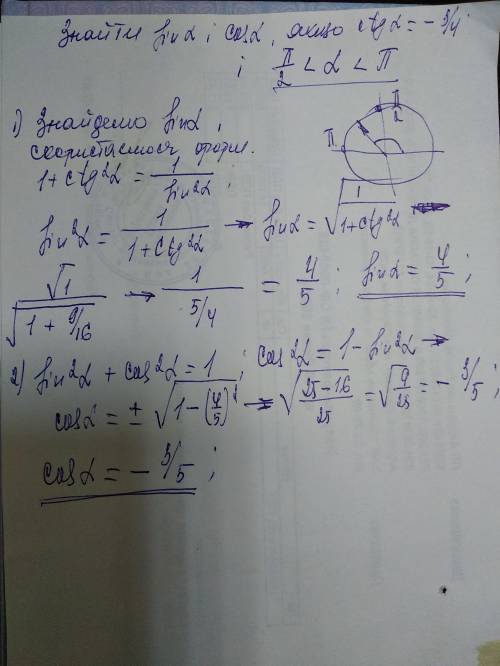 Знайти sin α і cos α, якщо ctg α = - 3/4
і π/2 < α < π
1) Знайдемо sin α,
скористаємося форм.
1 + ctg²α = 1/sin²α;
π/2
π
sin²α = 1/(1+ctg²α) → sin α = √(1/(1+ctg²α))
√1/√(1 + 9/16) → 1/(5/4) = 4/5; sin α = 4/5;
2) sin²α + cos²α = 1; cos²α = 1 - sin²α →
cos α = ± √(1 - (4/5)²) → √((25-16)/25) = √(9/25) = - 3/5;
cos α = - 3/5;